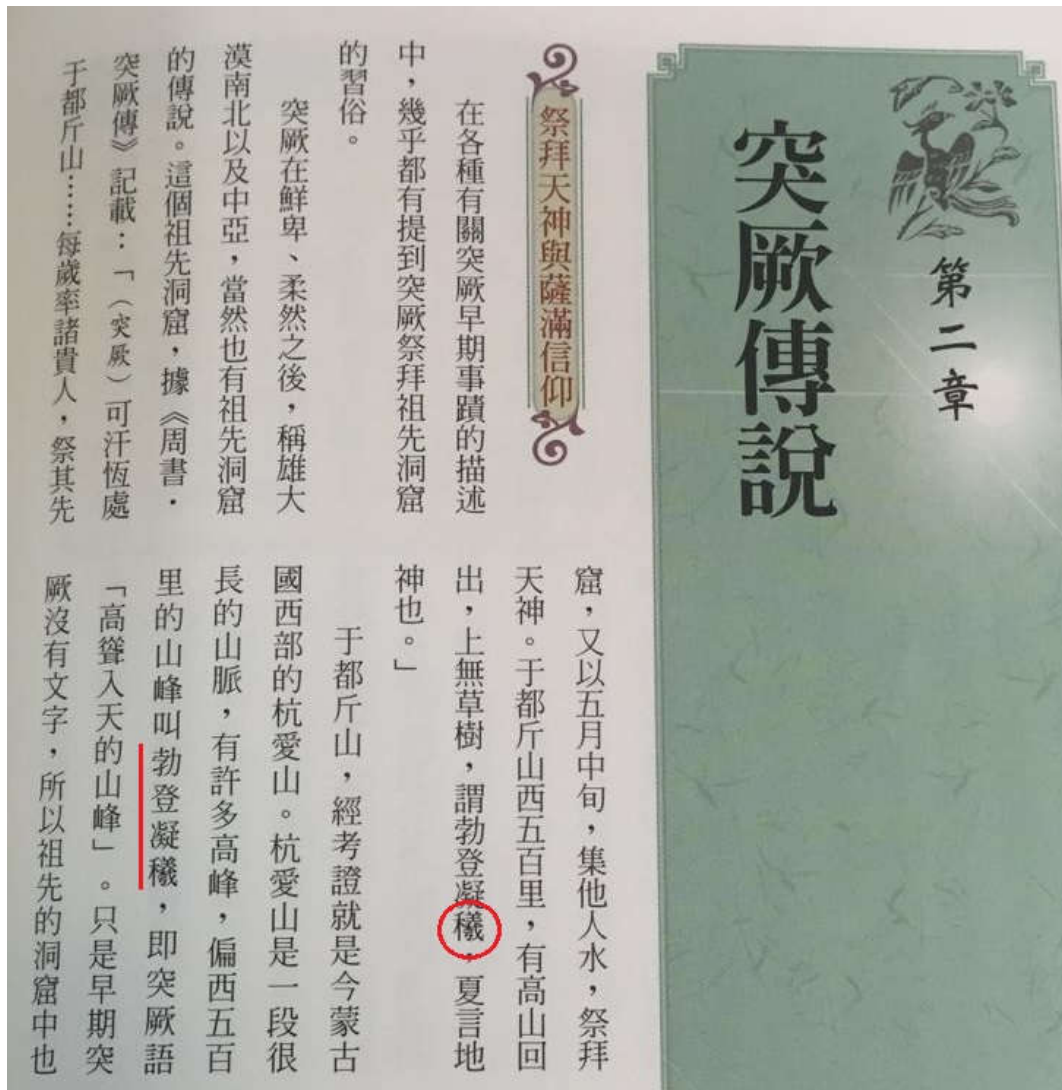 第二章
突厥傳說
祭拜天神與薩滿信仰
在各種有關突厥早期事蹟的描述
中，幾乎都有提到突厥祭拜祖先洞窟
的習俗。
突厥在鮮卑、柔然之後，稱雄大
漠南北以及中亞，當然也有祖先洞窟
的傳說。這個祖先洞窟，據《周書．
突厥傳》記載：「（突厥）可汗恆處
于都斤山……每歲率諸貴人，祭其先
窟，又以五月中旬，集他人水，祭拜
天神。于都斤山西五百里，有高山回
出，上無草樹，謂勃登凝，夏言地
神也。」
于都斤山，經考證就是今蒙古
國西部的杭愛山。杭愛山是一段很
長的山脈，有許多高峰，偏西五百
里的山峰叫勃登凝，即突厥語
「高聳入天的山峰」。只是早期突
厥沒有文字，所以祖先的洞窟中也